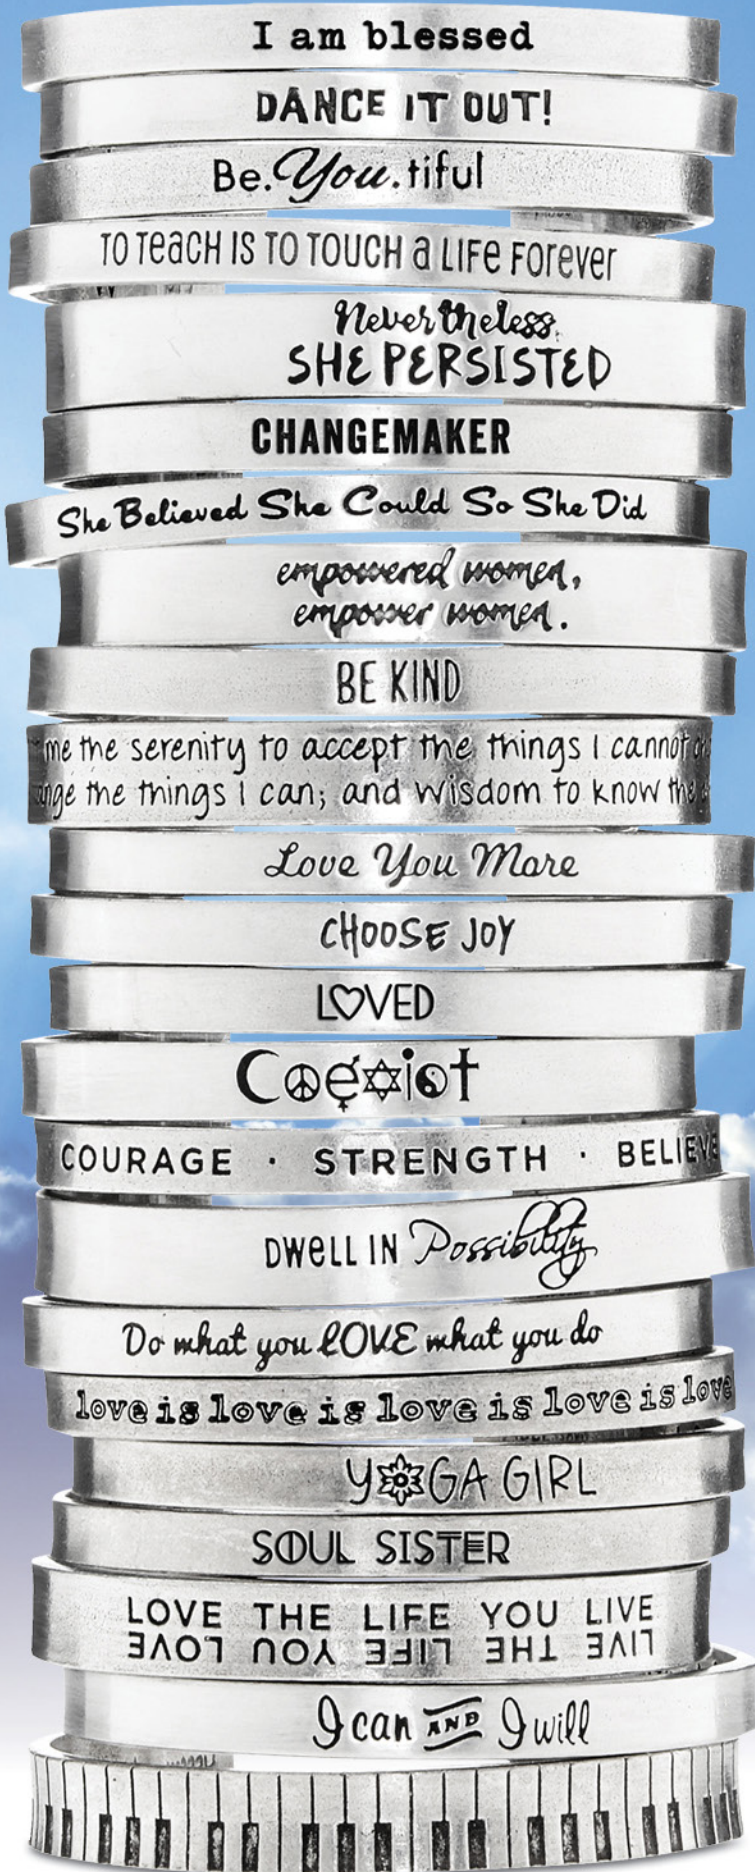 I am blessed
DANCE IT OUT!
Be.You.tiful
TO TEACH IS TO TOUCH a LIFE FOREVER
Nevertheless,
SHE PERSISTED
CHANGEMAKER
She Believed She Could So She Did
empowered women,
empower women.
BE KIND
me the serenity to accept the things I cannot
the things I can; and wisdom to know the
Love You More
CHOOSE JOY
LOVED
Coexist
COURAGE · STRENGTH · BELIEVE
DWELL IN Possibility
Do what you LOVE what you do
love is love is love is love is love
YOGA GIRL
SOUL SISTER
LOVE THE LIFE YOU LIVE
LIVE THE LIFE YOU LOVE
I can AND I will